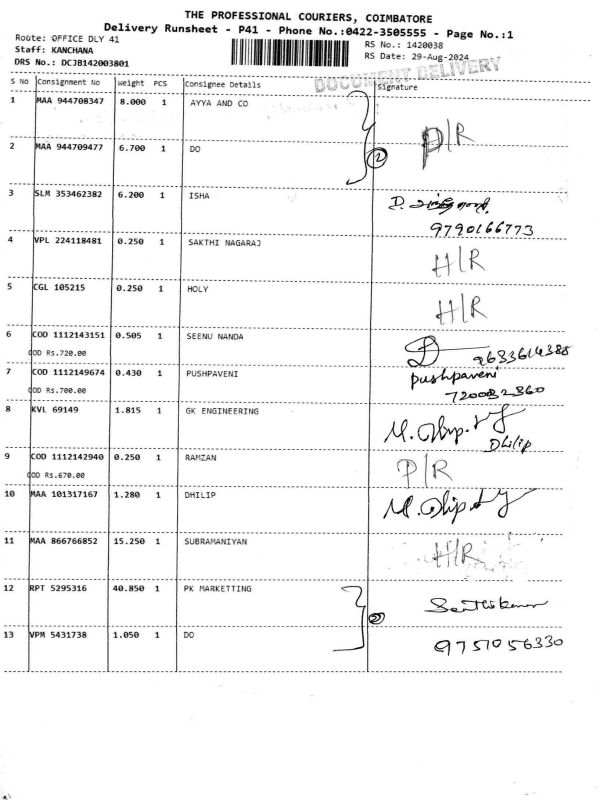 THE PROFESSIONAL COURIERS, COIMBATORE
Delivery Runsheet - P41 - Phone No.:0422-3505555 - Page No.:1
Route: OFFICE DLY 41
RS No.: 1420038
Staff: KANCHANA
RS Date: 29-Aug-2024
DRS No.: DCJB142003801
DOCUMENT DELIVERY
S No Consignment No Weight PCS Consignee Details Signature
1 MAA 944708347 8.000 1 AYYA AND CO
P/R
2 MAA 944709477 6.700 1 DO
2
3 SLM 353462382 6.200 1 ISHA D.
9790166773
4 VPL 224118481 0.250 1 SAKTHI NAGARAJ H/R
5 CGL 105215 0.250 1 HOLY H/R
6 COD 1112143151 0.505 1 SEENU NANDA
COD Rs.720.00
7 COD 1112149674 0.430 1 PUSHPAVENI pushpaveni
COD Rs.700.00
8 KVL 69149 1.815 1 GK ENGINEERING M.
Dhilip
9 COD 1112142940 0.250 1 RAMZAN P/R
COD Rs.670.00
10 MAA 101317167 1.280 1 DHILIP M.
11 MAA 866766852 15.250 1 SUBRAMANIYAN H/R
12 RPT 5295316 40.850 1 PK MARKETTING
2
13 VPM 5431738 1.050 1 DO 9751056330